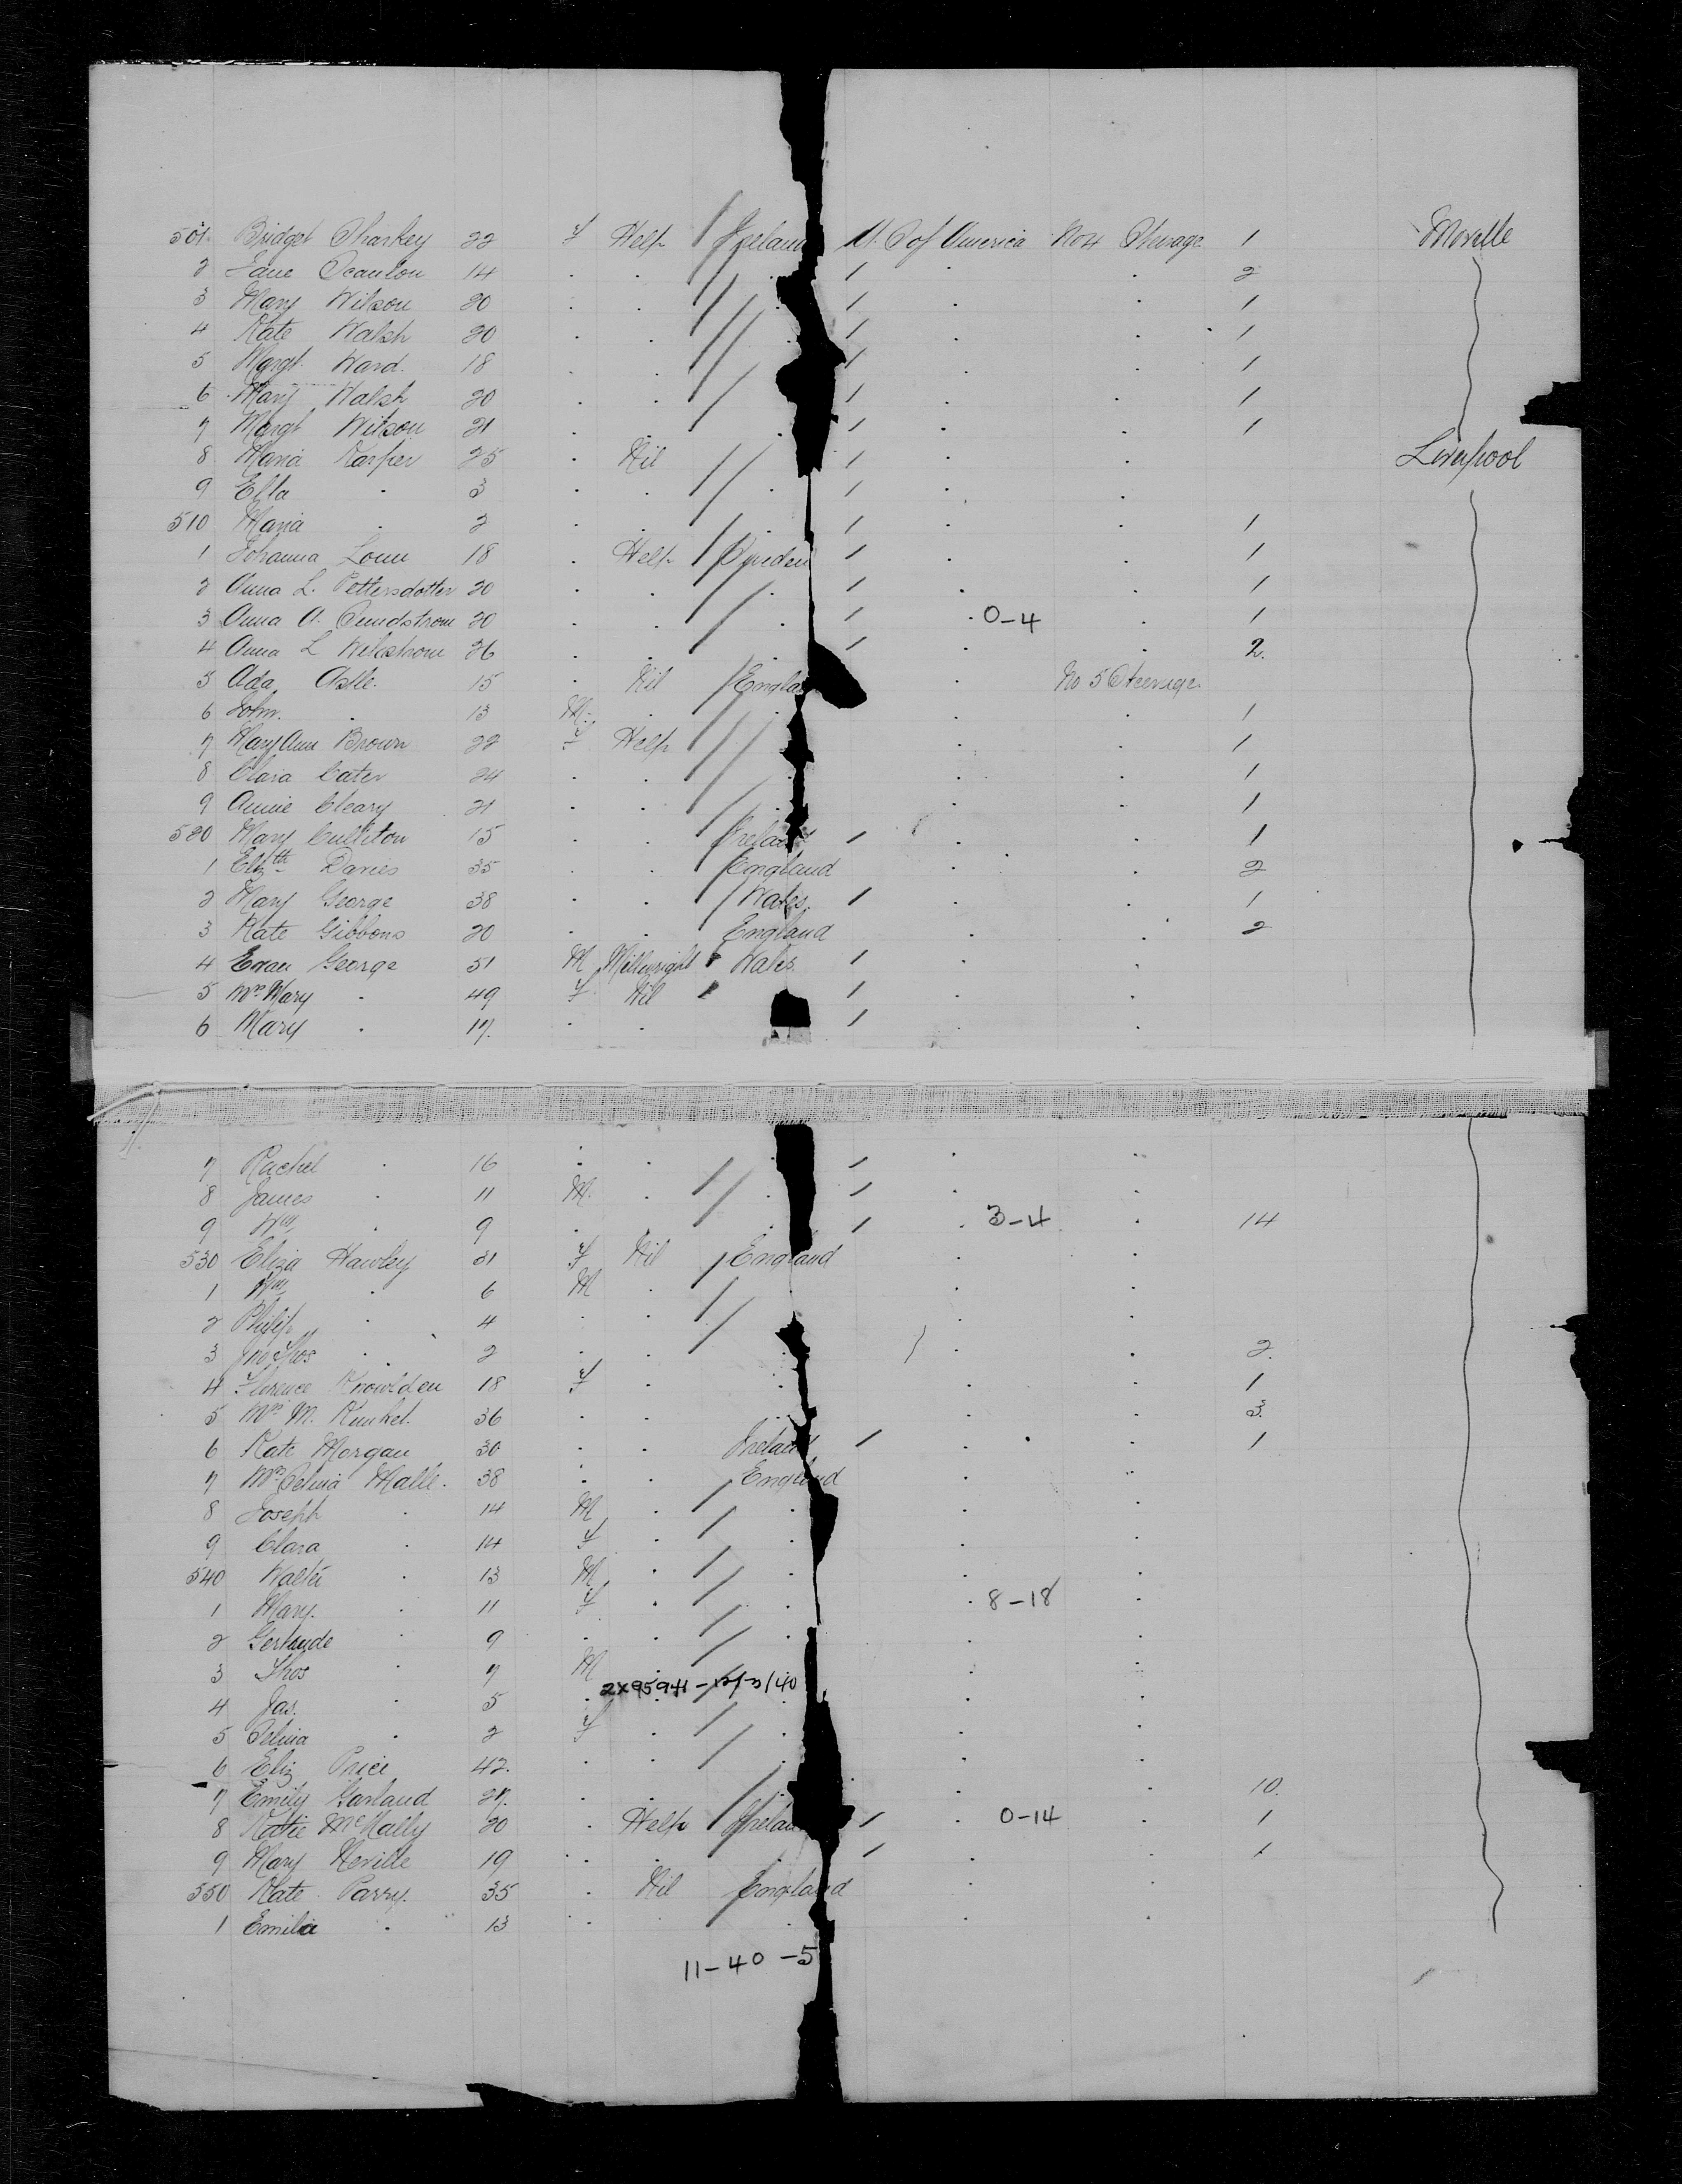 501 Bridget Sharkey 22 F Help Ireland U. S of America No 4 Steerage 1 Moville
2 Jane Scanlon 14 . . . . 2
3 Mary Wilson 20 . . . . . 1
4 Kate Walsh 20 . . . . 1
5 Margt Ward. 18 . . . . 1
6 Mary Walsh 20 . . . . 1
7 Margt Wilson 21 . . . . . 1
8 Maria 25 . Nil . . Liverpool
9 . 3 . . . . .
510 Maria . 2 . . . . . 1
1 Johanna 18 . Help Sweden . . 1
2 Anna L. Pettersdotter 20 . . . . . 1
3 Anna A. Sundstrom 20 . . . . 0-4 . 1
4 Anna L 26 . . . . . 2.
5 Ada Astle. 15 . Nil England . No 5 Steerage
6 John. . 13 M. . . . 1
7 Mary Ann Brown 22 F Help . . 1
8 Clara Cater 24 . . . . . 1
9 Annie Cleary 21 . . . . . 1
520 Mary Culliton 15 . . Ireland . 1
1 Elizth Davies 35 . . England . . 2
2 Mary George 38 . . Wales. . . 1
3 Kate Gibbons 20 . . England . . 2
4 Evan George 51 M Millwright Wales . .
5 Mrs Mary . 49 F Nil . .
6 Mary . 17. . . . .
7 Rachel . 16 . . . . .
8 James . 11 M. . . .
9 Wm . 9 . . . 3-4 . 14
530 Eliza Hawley 31 F Nil England . .
1 Wm . 6 M . . .
2 Philip . 4 . . . .
3 Jno Thos . 2 . . . . 2.
4 Florence Knowlden 18 F . . . . 1
5 Mrs M. Kunkel. 36 . . . . 3.
6 Kate Morgan 30 . . Ireland . . 1
7 Mrs Selina Malle. 38 . . England . .
8 Joseph . 14 M . . . .
9 Clara . 14 F . . . .
540 Walter . 13 M . . . .
1 Mary. . 11 F . . . 8-18 .
2 Gertrude . 9 . . . . .
3 Thos . 7 M . . . .
2X95941-12/3/40
4 Jas. . 5 . . . .
5 Selina . 2 F . . . .
6 Eliz Price 42. . . . . .
7 Emily Garland 27. . . . . 10.
8 Katie McNally 20 . Help Ireland . 0-14 . 1
9 Mary Neville 19 . . . . . 1
550 Kate Parry. 35 . Nil England . .
1 Emilia . 13 . . . . .
11-40-5